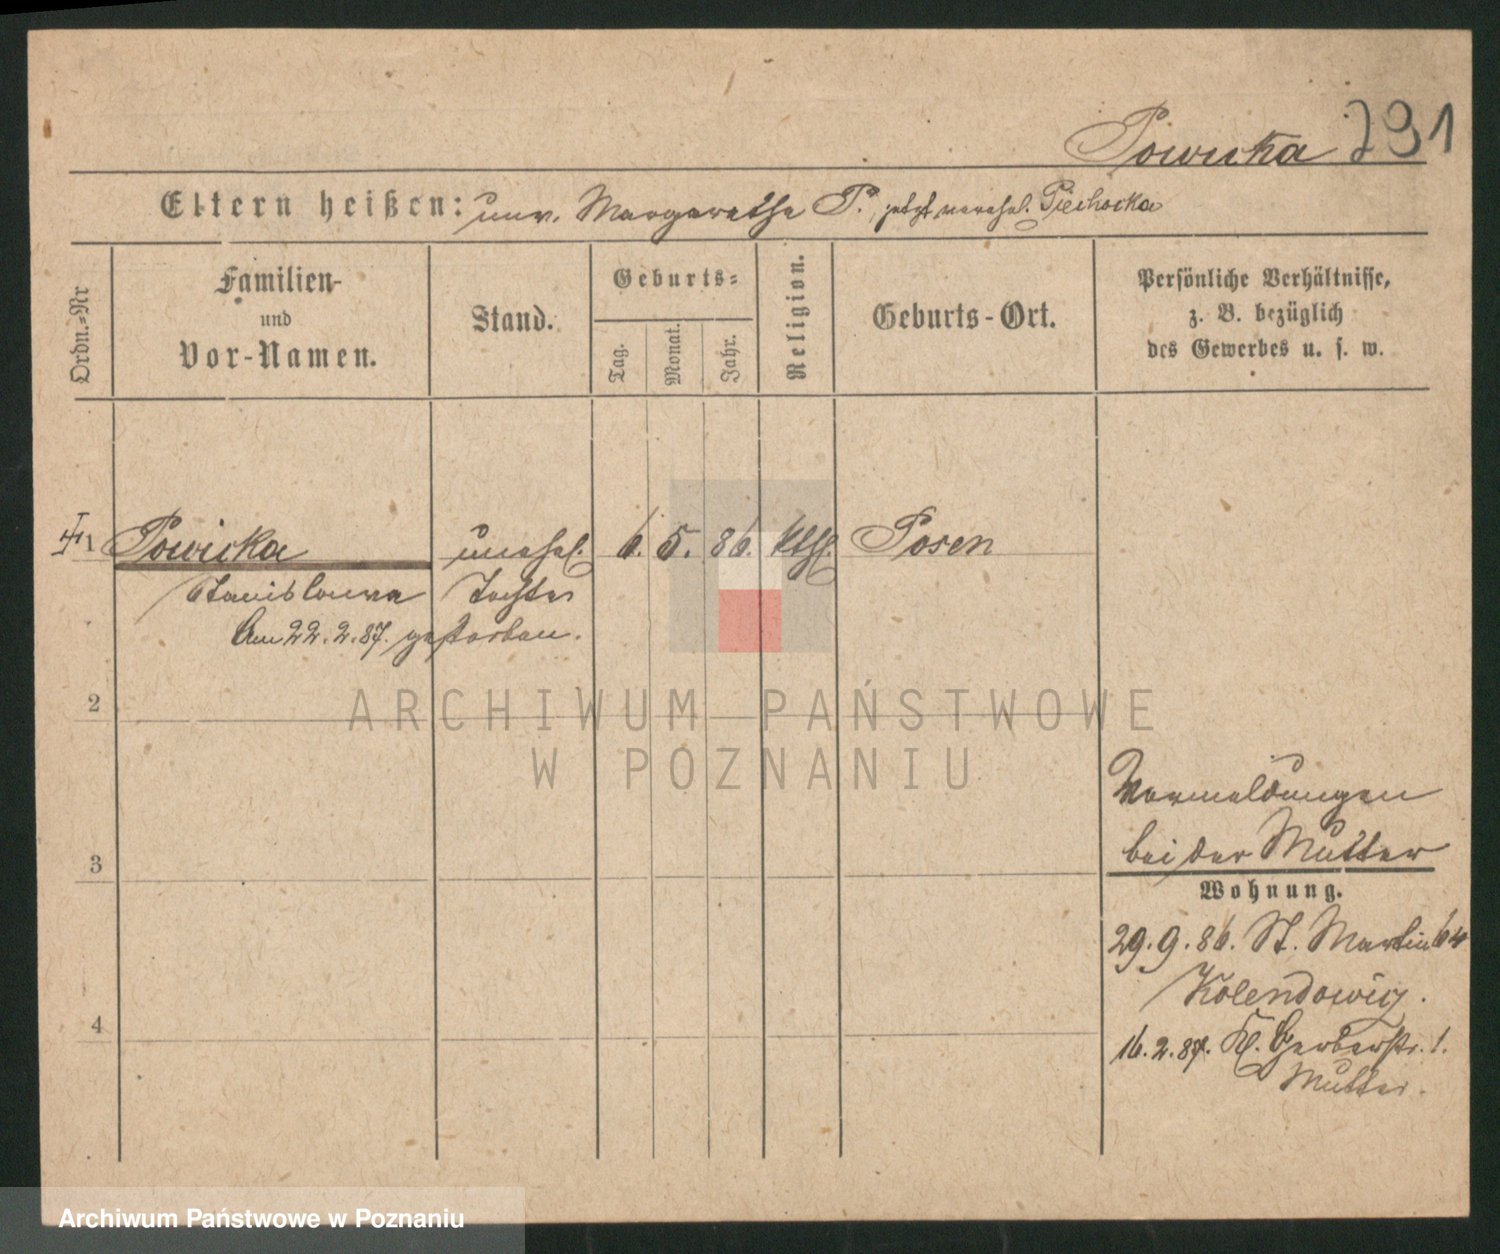 Powicka 291
Eltern heißen: unv. Margarethe P., jetzt verehel. Piechocka
Ordn.-Nr
Familien-
und
Vor-Namen.
Stand.
Geburts-
Tag.
Monat.
Jahr.
Religion.
Geburts-Ort.
Persönliche Verhältnisse,
z. B. bezüglich
des Gewerbes u. s. w.
1 Powicka unehel. 6. 5. 86. kth. Posen
Stanislawa Tochter
Am 22.2.87. gestorben.
2
ARCHIWUM PAŃSTWOWE
W POZNANIU
3
4
Vormeldungen
bei der Mutter
Wohnung.
29.9.86. St. Martin 64
Kolendowicz.
16.2.87. Kl. Gerberstr. 1.
Mutter.
Archiwum Państwowe w Poznaniu